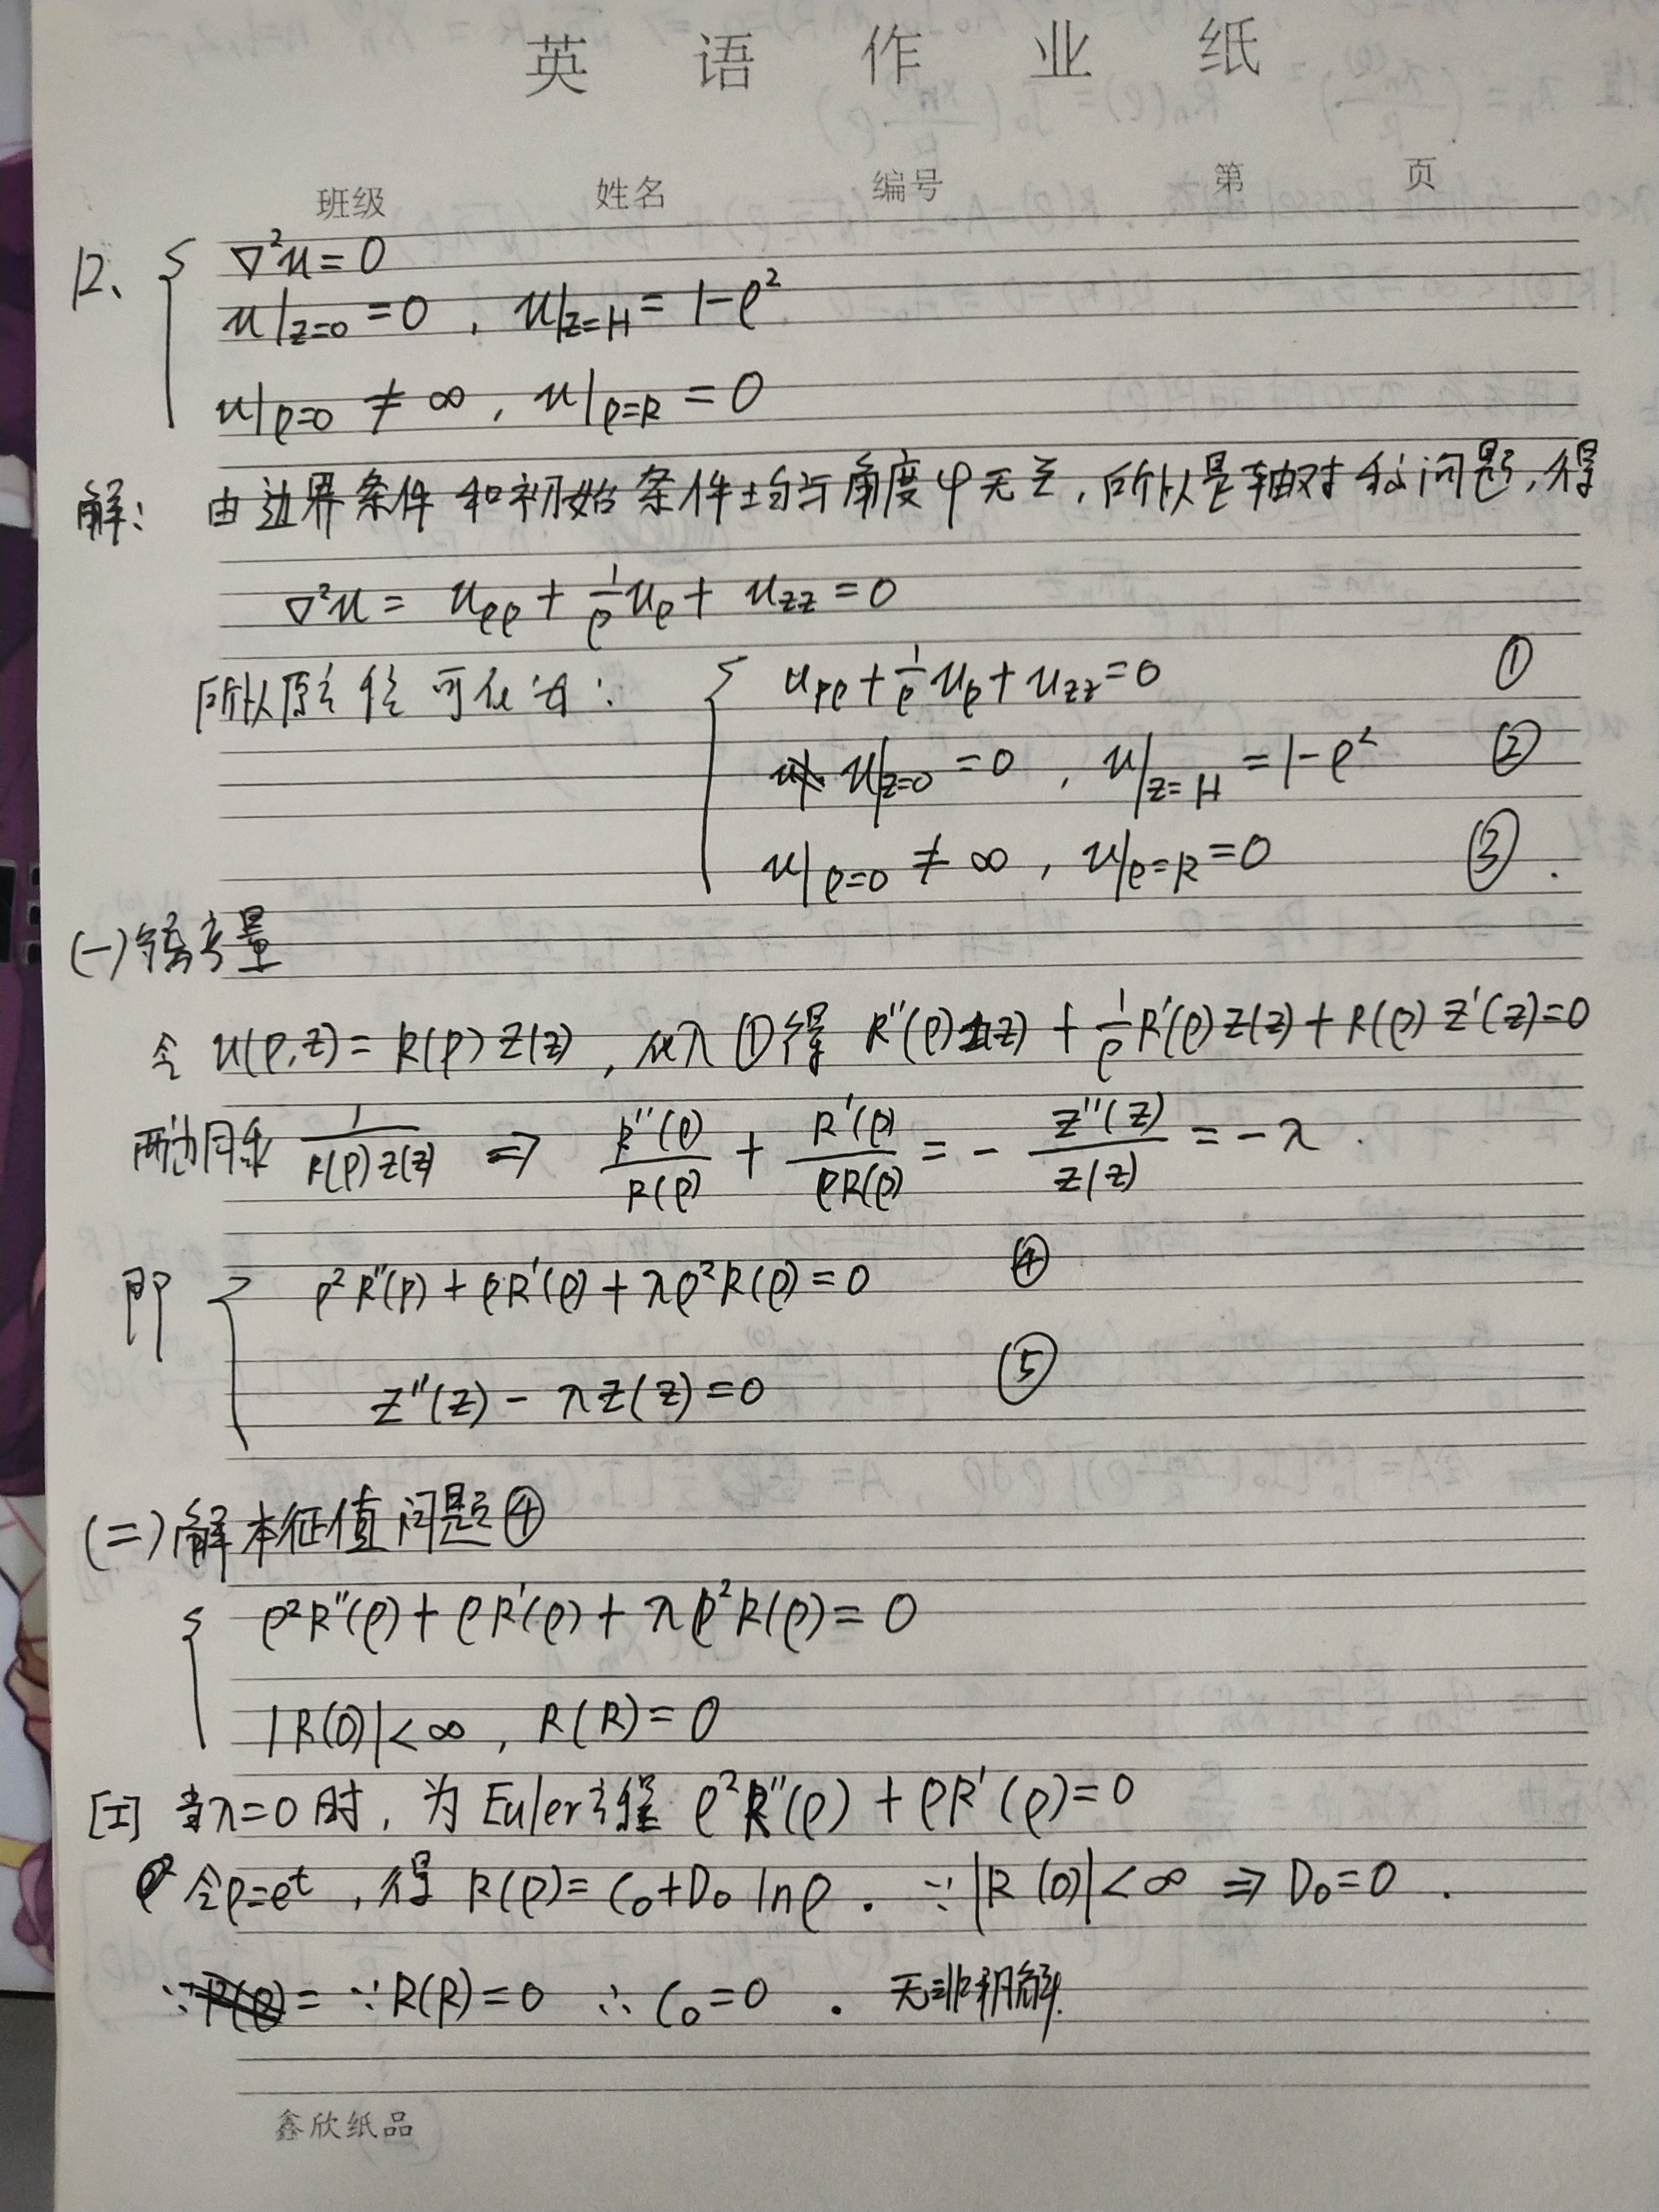 英语作业纸
班级 姓名 编号 第 页
12、 { ∇²u=0
u|z=0 =0 , u|z=H = 1-ρ²
u|ρ=0 ≠ ∞ , u|ρ=R = 0
解: 由边界条件和初始条件均与角度φ无关,所以是轴对称问题,得
∇²u = uρρ + 1/ρ uρ + uzz = 0
所以原方程可化为: { uρρ + 1/ρ uρ + uzz = 0 ①
u|z=0 = 0 , u|z=H = 1-ρ² ②
u|ρ=0 ≠ ∞ , u|ρ=R = 0 ③ .
(一)分离变量
令 u(ρ,z) = R(ρ) Z(z) , 代入①得 R''(ρ)Z(z) + 1/ρ R'(ρ) Z(z) + R(ρ) Z'(z)=0
两边同乘 1/(R(ρ)Z(z)) ⇒ R''(ρ)/R(ρ) + R'(ρ)/(ρR(ρ)) = - Z''(z)/Z(z) = -λ .
即 { ρ²R''(ρ) + ρR'(ρ) + λρ²R(ρ) = 0 ④
Z''(z) - λZ(z) = 0 ⑤
(二)解本征值问题④
{ ρ²R''(ρ) + ρR'(ρ) + λρ²R(ρ) = 0
|R(0)|<∞ , R(R) = 0
[I] 当λ=0时, 为Euler方程 ρ²R''(ρ) + ρR'(ρ) = 0
令ρ=e^t , 得 R(ρ) = C₀+D₀ lnρ . ∵ |R(0)|<∞ ⇒ D₀=0 .
∵ R(ρ) = ∵ R(R)=0 ∴ C₀=0 . 无非零解.
鑫欣纸品